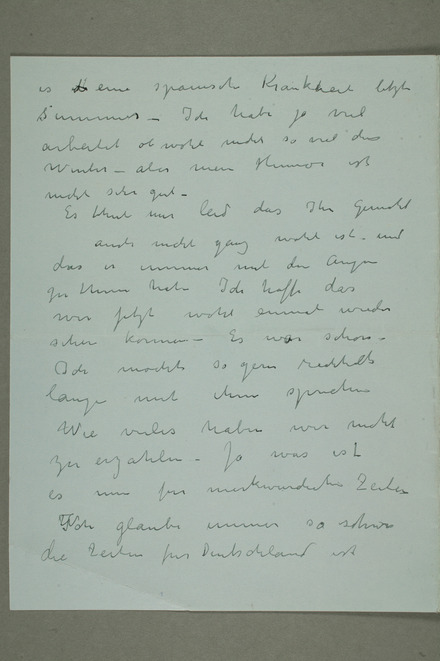 es eine spanische Krankheit letzte
Summer – Ich habe ja viel
arbeitet obwohl nicht so viel dies
Winter – aber mein Humor ist
nicht sehr gut –
Es thut mir leid das Ihr Gemahl
auch nicht ganz wohl ist – und
das er immer mit den Augen
zu thun hat Ich hoffe das
wir jetzt wohl einmal wieder
sehen können – Es war schon –
Ich mochte so gern
lange mit Ihnen sprechen
Wie vieles haben wir nicht
zu erzahlen – Ja was ist
es nun fur merkwurdige Zeiten
Ich glaube immer so schwer
die Zeiten fur Deutschland ist